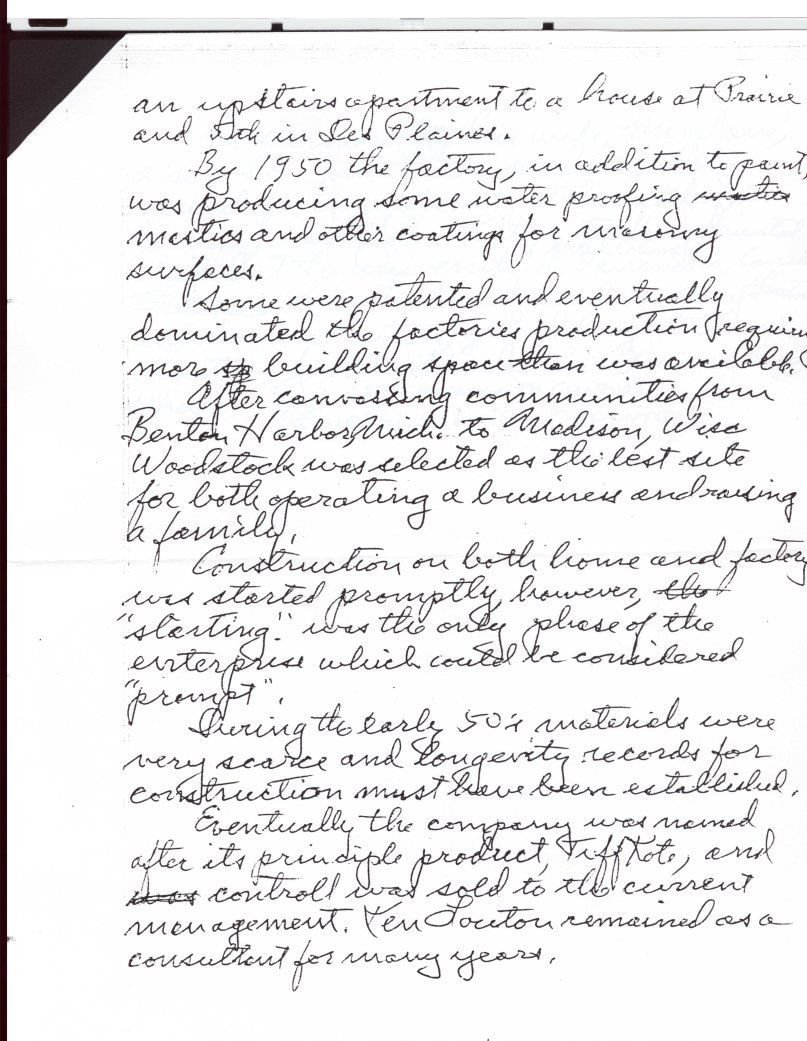 an upstairs apartment to a house at Prairie
and 5th in Des Plaines.
By 1950 the factory, in addition to paint,
was producing some water proofing
mastics and other coatings for masonry
surfaces.
Some were patented and eventually
dominated the factories production requirin
more building space than was available.
After canvassing communities from
Benton Harbor, Mich. to Madison, Wisc
Woodstock was selected as the best site
for both operating a business and raising
a family.
Construction on both home and factory
was started promptly, however, the
"starting" was the only phase of the
enterprise which could be considered
"prompt".
During the early 50's materials were
very scarce and longevity records for
construction must have been established.
Eventually the company was named
after its principle product, Tuff Kote, and
was controll was sold to the current
management. Ken Louton remained as a
consultant for many years.